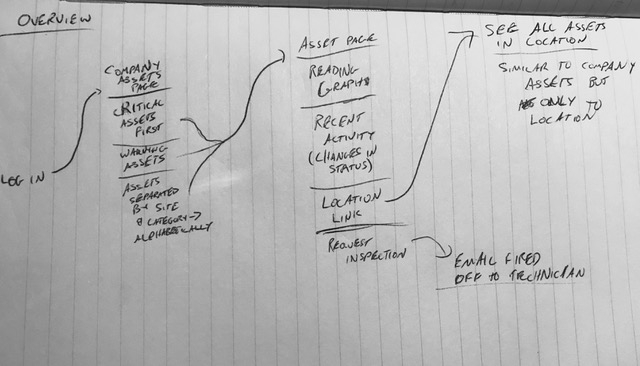 OVERVIEW
LOG IN
COMPANY
ASSETS
PAGE
CRITICAL
ASSETS
FIRST
WARNING
ASSETS
ASSETS
SEPARATED
BY SITE
& CATEGORY →
ALPHABETICALLY
ASSET PAGE
READING
GRAPHS
RECENT
ACTIVITY
(CHANGES IN
STATUS)
LOCATION
LINK
REQUEST
INSPECTION
SEE ALL ASSETS
IN LOCATION
SIMILAR TO COMPANY
ASSETS BUT
ONLY TO
LOCATION
EMAIL FIRED
OFF TO TECHNICIAN